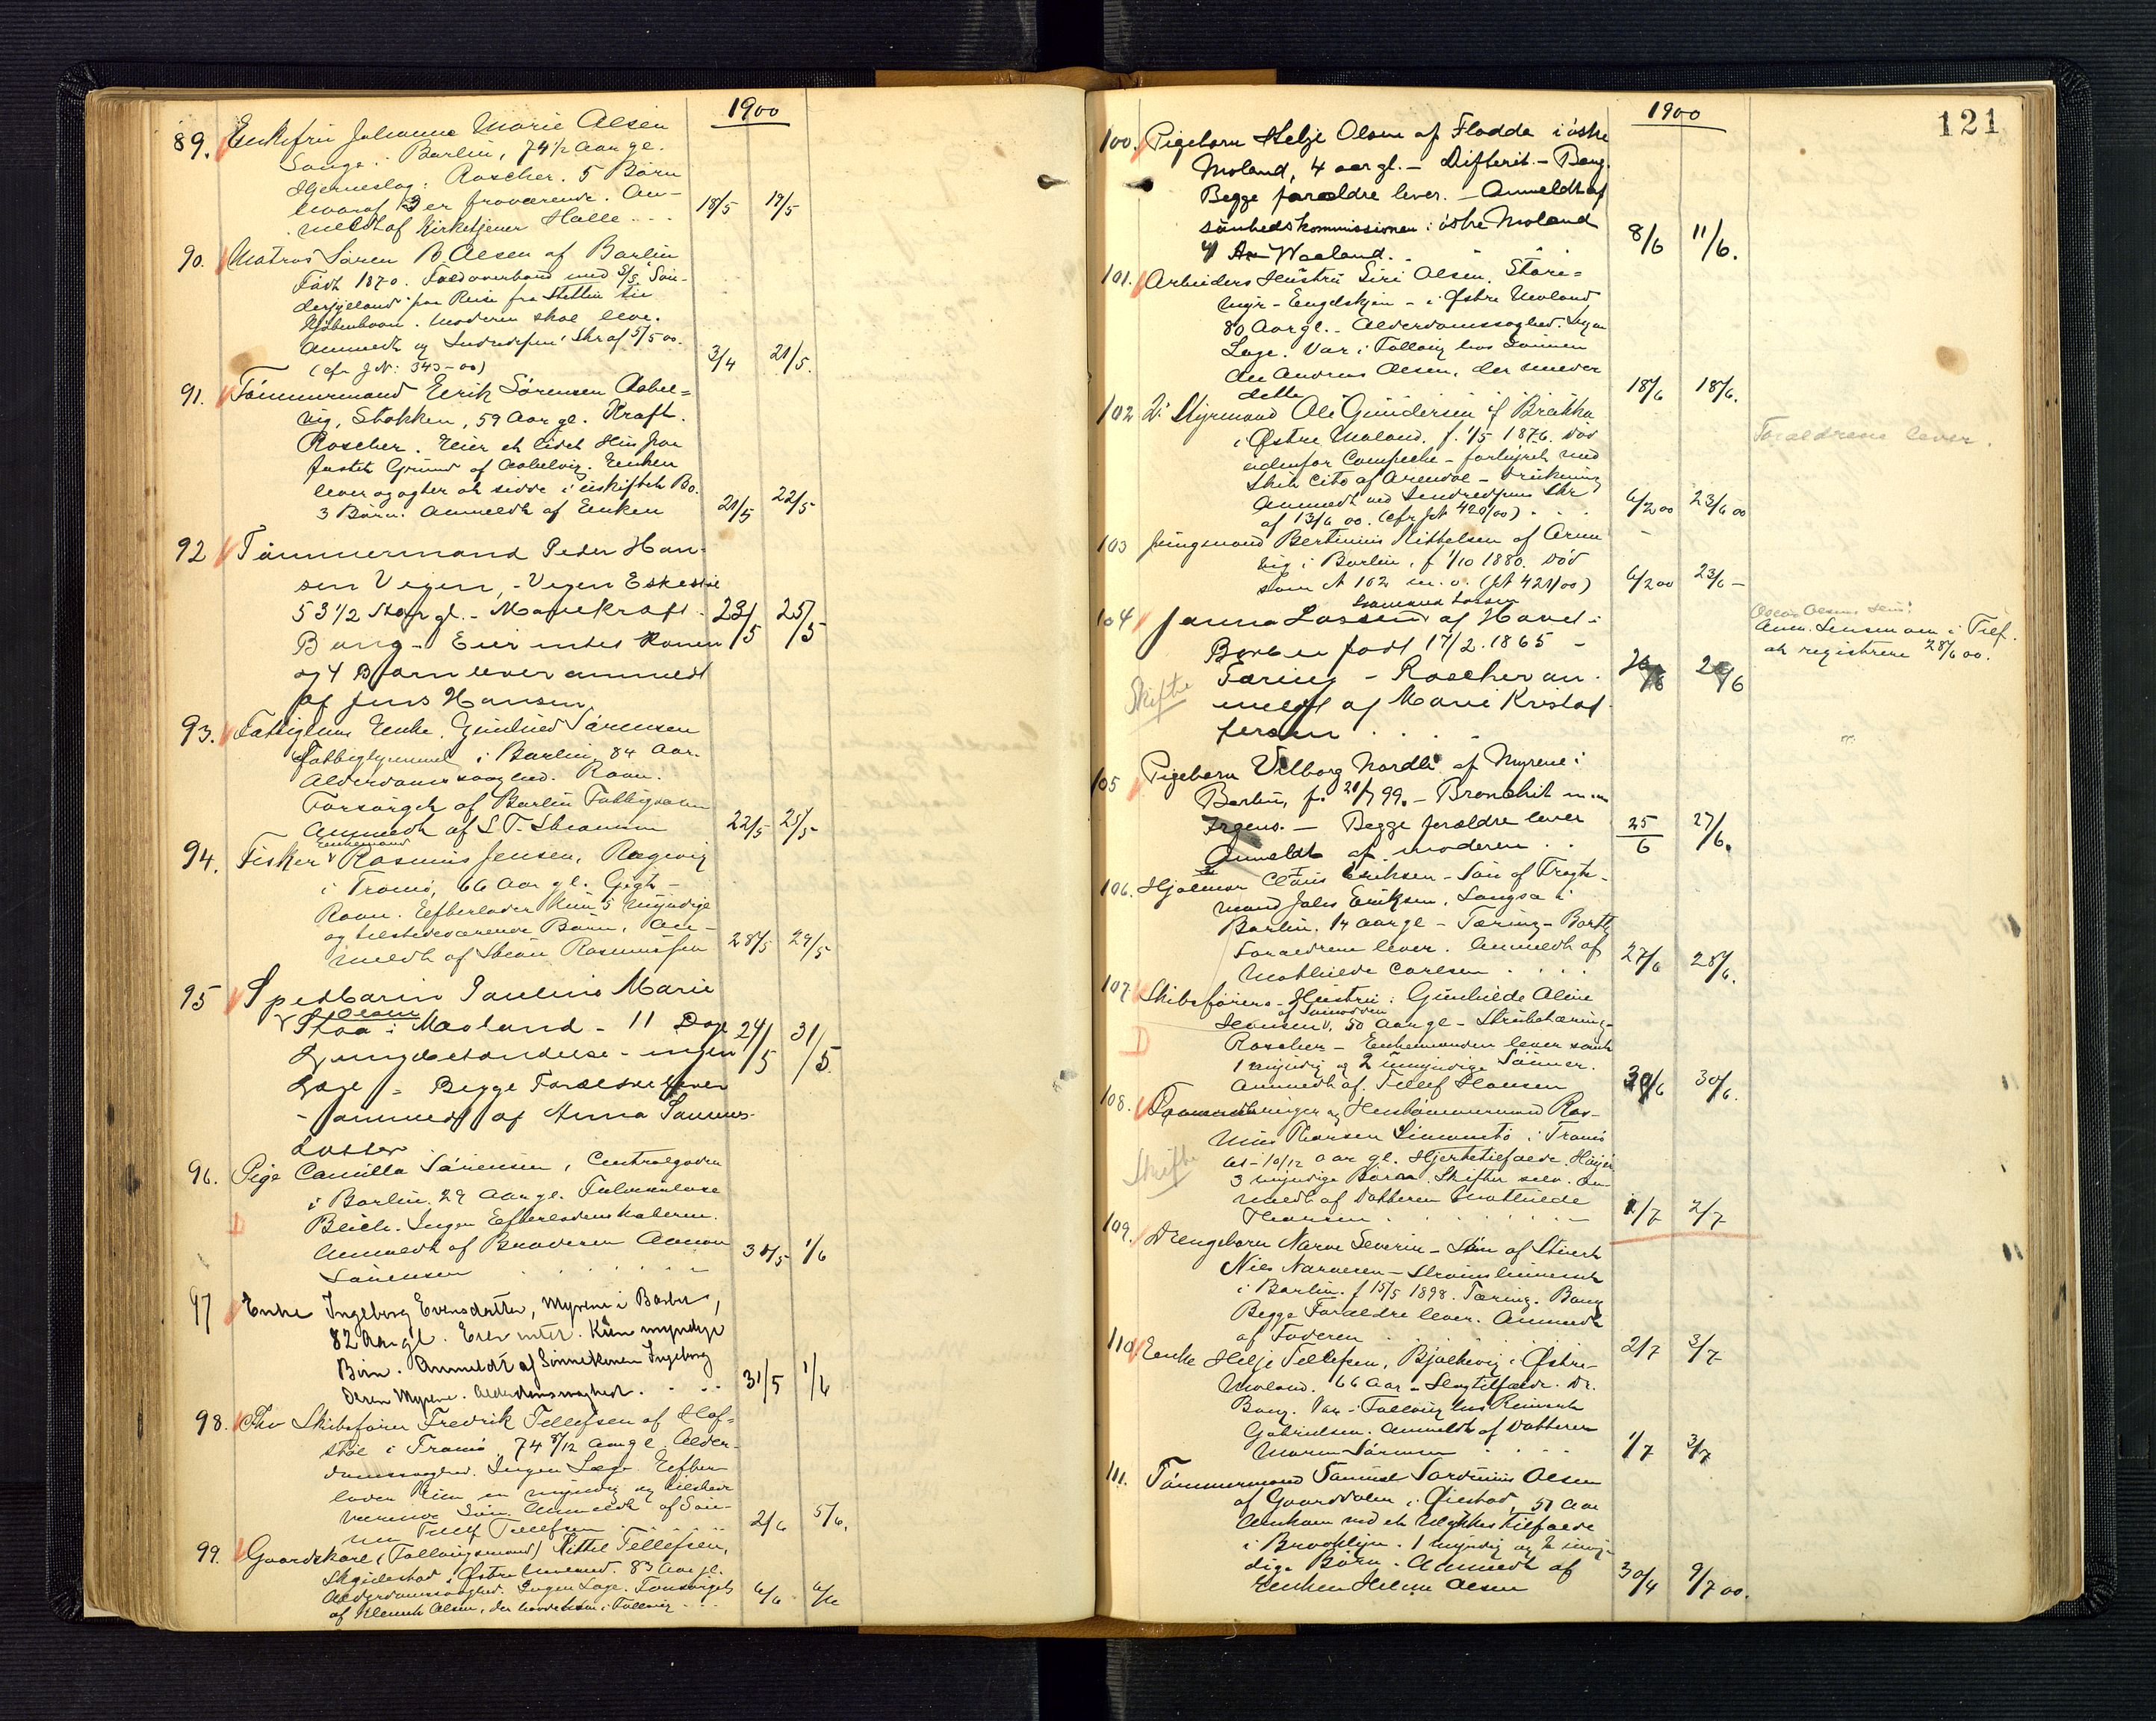 1900
89. Enkefru Johanne Marie Olsen
Songe i Barbu, 74 1/2 Aar gl.
Hjerneslag: Roscher. 5 Børn
hvoraf 3 er fraværende. An-
meldt af Kirketjener Halle ... 18/5 19/5
90. Matros Søren B. Olsen af Barbu
Født 1870. Faldt overbord med S/S "Søn-
derjylland" paa Reise fra Stettin til
Kjøbenhavn. Moderen skal leve.
Anmeldt af Indredepts Skr af 5/5 00.
(cfr JN: 345-00) 3/4 21/5.
91. Tømmermand Eerik Sørensen Aabel-
vig, Stokken, 59 Aar gl. Kræft.
Roscher. Eier et lidet Hus paa
festet Grund af Aabelvig. Enken
lever og agter at sidde i uskiftet Bo.
3 Børn. Anmeldt af Enken 21/5 22/5
92 Tømmermand Peder Han-
sen Vejen, - Vejen Eskedal
53 1/2 Aar gl. - Mavekræft - 23/5 25/5
Bang - Eier intet Konen
og 4 Børn lever anmeldt
af Jens Hansen
93. Fattiglem Enke Gunhild Sørensen
Fattighjemmet i Barbu 84 Aar.
Alderdomssvaghed. Raan.
Forsørget af Barbu Fattigvæsen
Anmeldt af S. T. Strømmen 22/5 25/5
Enkemand
94. Fisker Rasmus Jensen, Rægevig
i Tromø, 66 Aar gl. Gigt -
Raan. Efterlader kun 5 myndige
og tilstedeværende Børn. An-
meldt af Stian Rasmussen 28/5 29/5
95 Spedbarn Pauline Marie
Olsen
Stoa i Moland - 11 Dage 24/5 31/5
Lungebetændelse - ingen
Læge - Begge Forældre lever
- anmeldt af Anna Samuels-
datter
96. Pige Camilla Sørensen, Centralgaden
i Barbu. 29 Aar gl.
Bleich. Ingen Efterladenskaber.
Anmeldt af Broderen
Sørensen 31/5 1/6
97 Enke Ingeborg Evensdatter, Myrene i Barbu,
82 Aar gl. Eier intet. Kun myndige
Børn. Anmeldt af Sønnekonen Ingeborg
Olsen Myrene. Alderdomssvaghed. 31/5 1/6
98. Fhv Skibsfører Fredrik Tellefsen af Hof-
støl i Tromø 74 8/12 Aar gl. Alder-
domssvaghed. Ingen Læge. Efter-
lader kun en myndig og tilstede-
værende Søn. Anmeldt af Søn-
nen Tellef Tellefsen 2/6 5/6.
99. Gaardskarl (Follaugsmand) Kittel Tellefsen,
Skydestad i Østre Moland. 83 Aar gl.
Alderdomssvaghed. Ingen Læge. Forsørget
af Olsen, der havde ham i Follaug ... 6/6 6/6
121
1900
100. Pigebarn Helje Olsen af Flødde i østre
Moland, 4 aar gl. - Difterit. - Bang.
Begge forældre lever. - Anmeldt af
sundhedskommissionen i østre Moland
v/ Waaland. 8/6 11/6.
101. Arbeiders Hustru Siri Olsen,
myr - Engelskjøn - i Østre Moland
80 Aar gl. - Alderdomssvaghed. Ingen
Læge. Var i Follaug hos Sønnen
Ole Andreas Olsen, der melder
dette 18/6 18/6.
102 2. Styrmand Ole Gundersen af Brække
i Østre Moland. f. 1/5 1876. Død
udenfor Campeche - forhyret med
Skib Cito af Arendal - Drukning
Anmeldt ved Indredepts Skr
af 13/6 00. (cfr JN 420/00) 6/2 00 23/6 00
Forældrene lever.
103 Jungmand Bertinius Kittelsen af
vig i Barbu, f 1/10 1880. Død
som N 102 m. v. (JN 421/00) 6/2 00 23/6 -
104 Janna Lassen af Havel i
Barbu født 17/2. 1865 -
Skifte Tæring - Roscher an-
meldt af Marie Kristof-
fersen
Anm. Lensmanden i Tref.
at registrere 28/6 00.
105 Pigebarn Valborg Nordli af Myrene i
Barbu, f. 21/7 99. - Bronchit m.m.
Irgens. - Begge forældre lever
Anmeldt af moderen 25/6 27/6.
106. Hjalmar Claus Eriksen - Søn af Fragte-
mand Johs Eriksen, Langsæ i
Barbu. 14 Aar gl - Tæring - Barth
Forældrene lever. Anmeldt af
Mathilde Carlsen 27/6 28/6.
107 Skibsførers Hustru: Gunhilde Aline
Hansen, 50 Aar gl - Strubetæring -
D Roscher - Enkemanden lever samt
1 myndig og 2 umyndige Sønner.
Anmeldt af Tellef Hansen 30/6 30/6.
108. og Hustømmermand Ras-
mus Thorsen Simonstø i Tromø
10/12 Aar gl. Hjertetilfælde. Høyer
Skifte 3 myndige Børn. Skifter selv. An-
meldt af Datteren Mathilde
Thorsen 1/7 2/7
109. Drengebarn Narve Severin - Søn af Stuert
Niels Narvesen - Strømsbuneset
i Barbu. f 15/5 1898. Tæring. Bang
Begge Forældre lever. Anmeldt
af Faderen 2/7 3/7
110 Enke Helje Tellefsen, Bjelkevig i Østre
Moland. 66 Aar - Slagtilfælde. Dr.
Bang. Var i Follaug hos Reinert
Gabrielsen. Anmeldt af Datteren
Maren Sørensen 1/7 3/7
111. Tømmermand Samuel Sørenius Olsen
af Gaarddalen i Øiestad, 51 Aar
Omkom ved et Ulykkestilfælde
i Brooklyn. 1 myndig og 2 umyn-
dige Børn. Anmeldt af
Enken Helene Olsen 30/4 9/7 00.